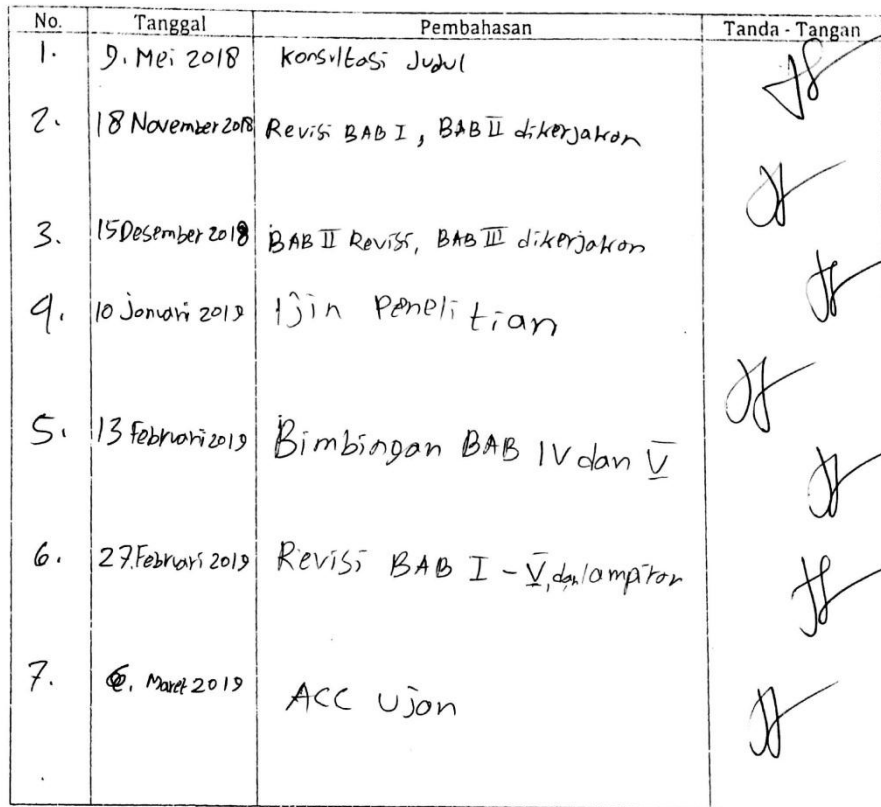 No. Tanggal Pembahasan Tanda - Tangan
1. 9. Mei 2018 Konsultasi Judul
2. 18 November 2018 Revisi BAB I, BAB II dikerjakan
3. 15 Desember 2018 BAB II Revisi, BAB III dikerjakan
4. 10 Januari 2019 Ijin Penelitian
5. 13 Februari 2019 Bimbingan BAB IV dan V
6. 27. Februari 2019 Revisi BAB I - V, dan lampiran
7. Maret 2019 ACC Ujan